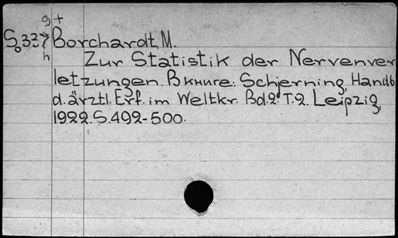 g +
S.337 Borchardt, M.
h Zur Statistik der Nervenver
letzungen. В книге: Schjerning, Handb.
d. ärztl. Erf. im Weltkr. Bd.2. T.2. Leipzig,
1922. S. 492-500.